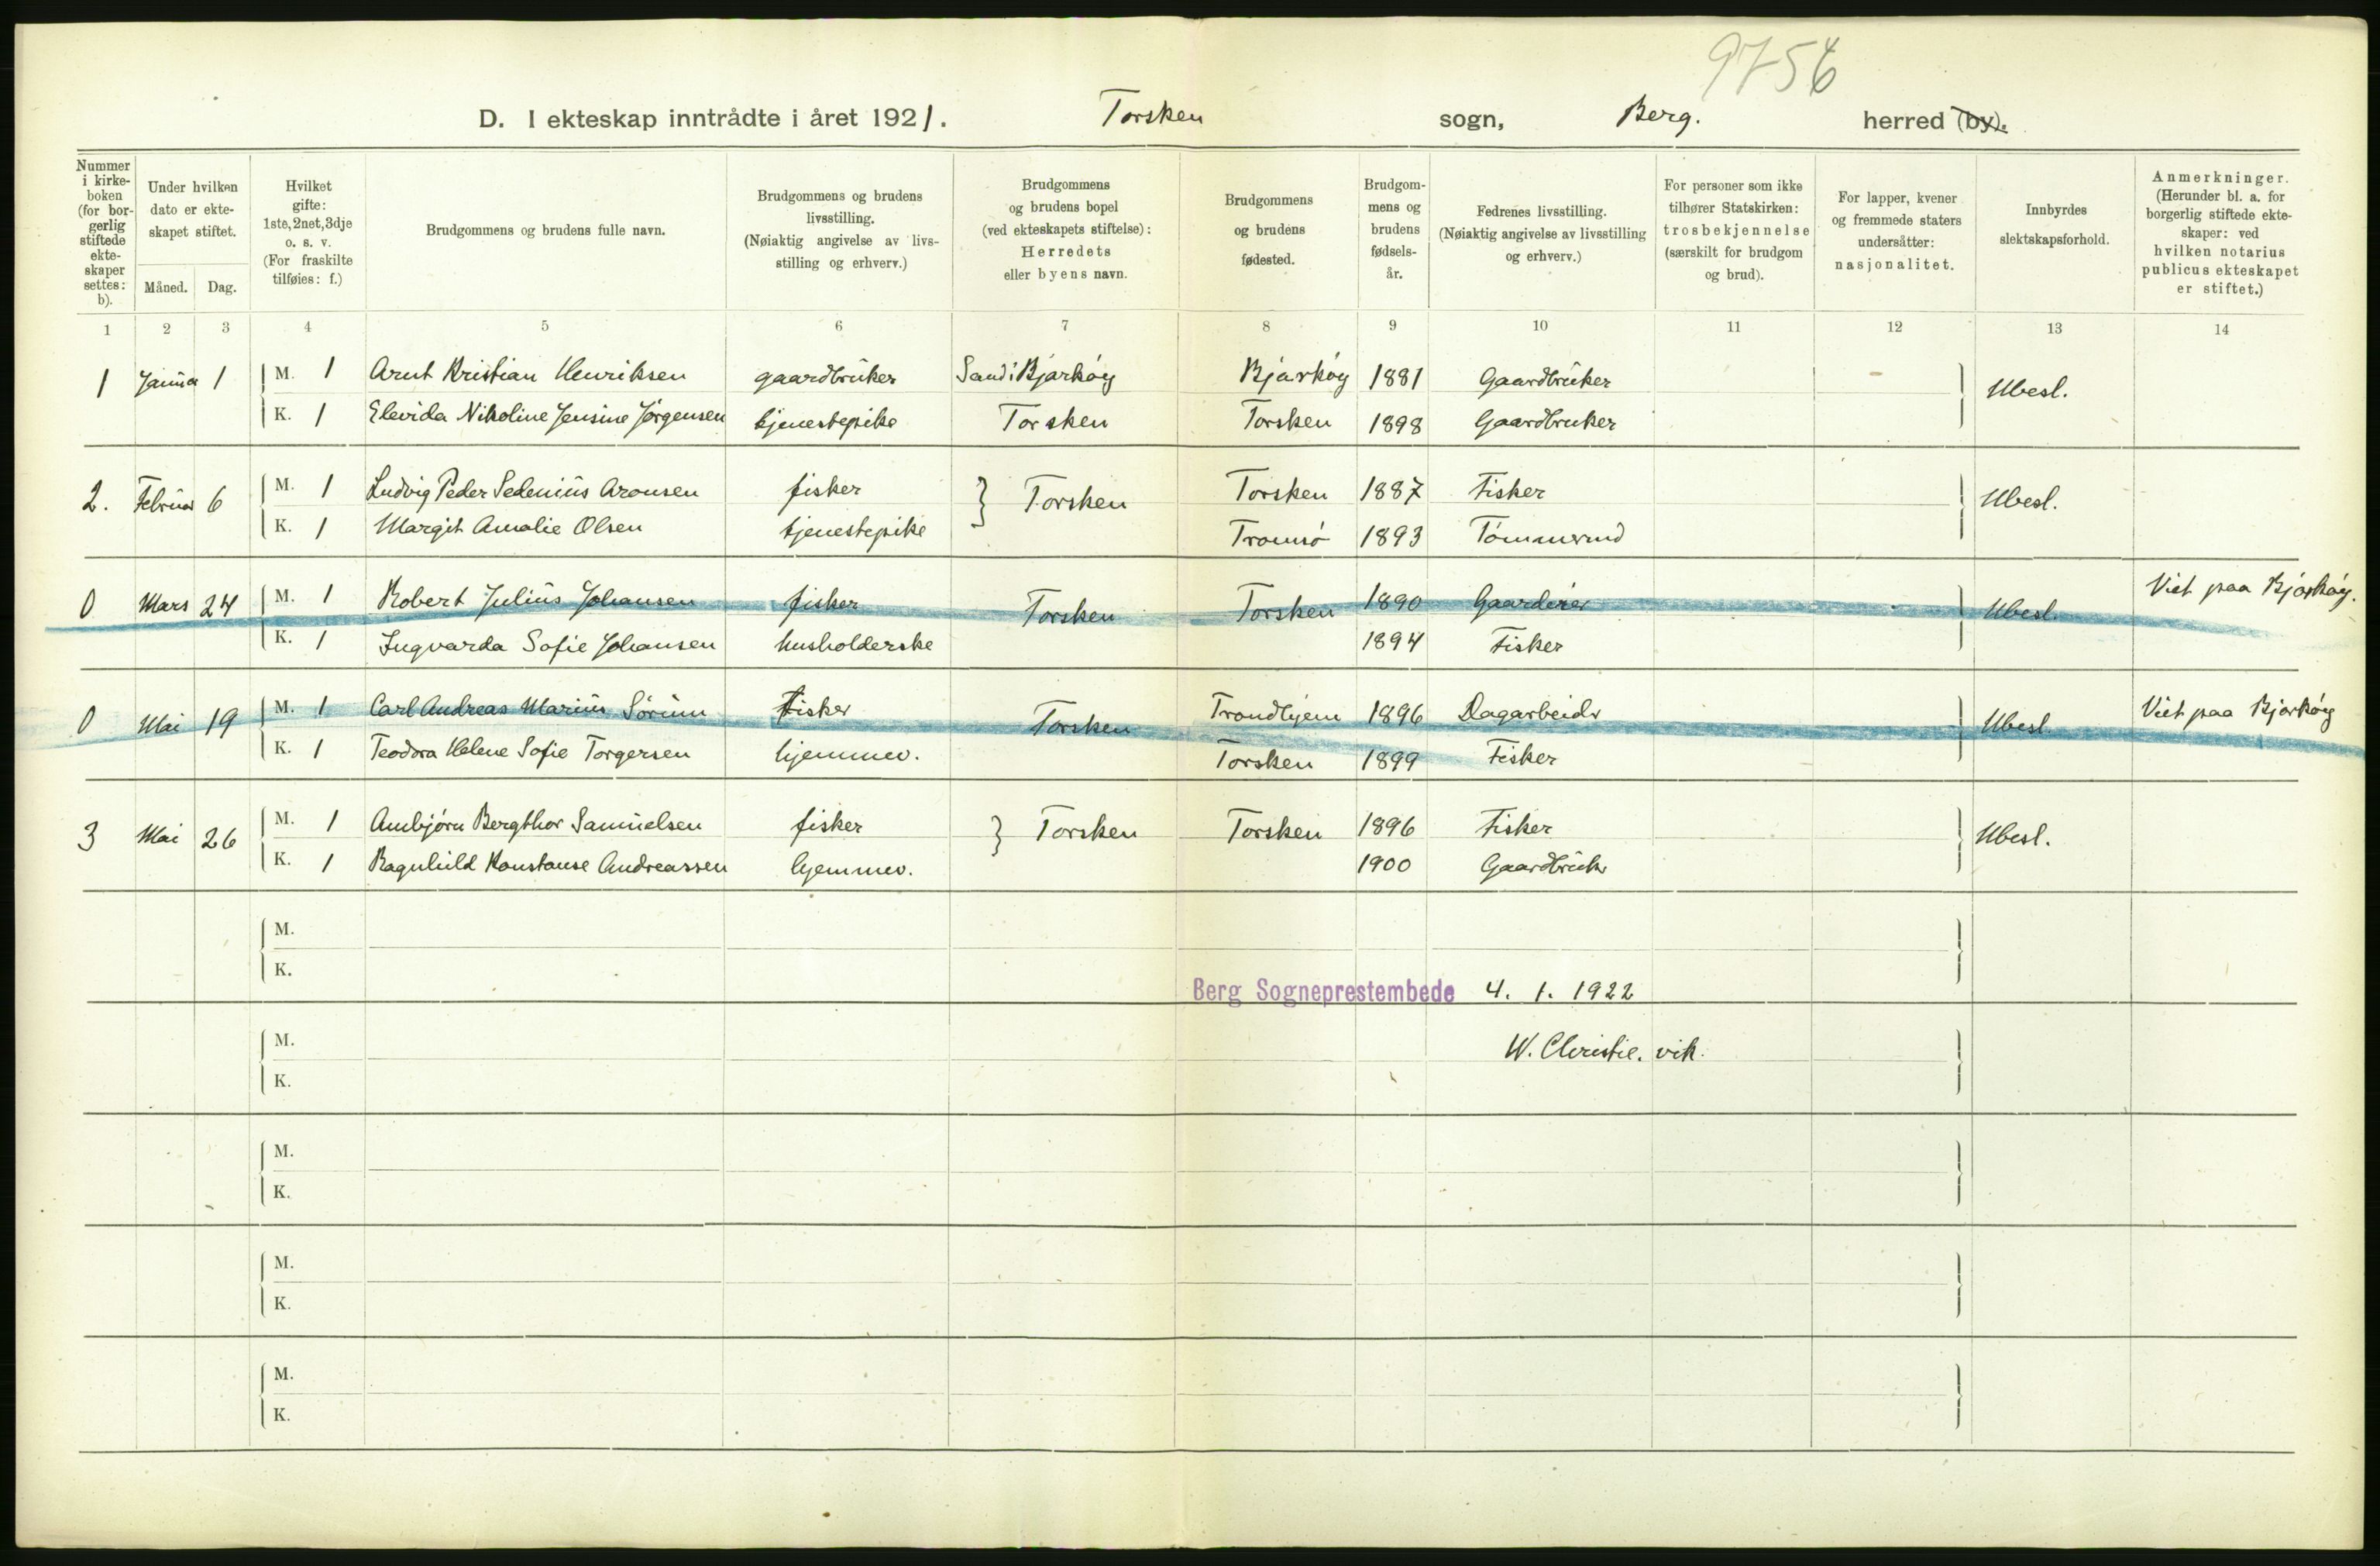 9756
D. I ekteskap inntrådte i året 1921. Torsken sogn, Berg. herred (by).
Nummer i kirke-boken (for bor-gerlig stiftede ekte-skaper settes: b).
Under hvilken dato er ekte-skapet stiftet.
Måned. Dag.
Hvilket gifte: 1ste, 2net, 3dje o. s. v. (For fraskilte tilføies: f.)
Brudgommens og brudens fulle navn.
Brudgommens og brudens livsstilling. (Nøiaktig angivelse av livs-stilling og erhverv.)
Brudgommens og brudens bopel (ved ekteskapets stiftelse): Herredets eller byens navn.
Brudgommens og brudens fødested.
Brudgom-mens og brudens fødsels-år.
Fedrenes livsstilling. (Nøiaktig angivelse av livsstilling og erhverv.)
For personer som ikke tilhører Statskirken: trosbekjennelse (særskilt for brudgom og brud).
For lapper, kvener og fremmede staters undersåtter: nasjonalitet.
Innbyrdes slektskapsforhold.
Anmerkninger. (Herunder bl. a. for borgerlig stiftede ekte-skaper: ved hvilken notarius publicus ekteskapet er stiftet.)
1 2 3 4 5 6 7 8 9 10 11 12 13 14
1 Januar 1 M. 1 Arnt Kristian Henriksen gaardbruker Sand i Bjarkøy Bjarkøy 1881 Gaardbruker Ubesl.
K. 1 Elevida Nikoline Jensine Jørgensen tjenestepike Torsken Torsken 1898 Gaardbruker
2. Februar 6 M. 1 Ludvig Peder Sedenius Aronsen fisker } Torsken Torsken 1887 Fisker Ubesl.
K. 1 Margit Amalie Olsen tjenestepike Tromsø 1893 Tømmermd
0 Mars 24 M. 1 Robert Julius Johansen fisker Torsken Torsken 1890 Gaardeier Ubesl. Viet paa Bjarkøy.
K. 1 Ingvarda Sofie Johansen husholderske 1894 Fisker
0 Mai 19 M. 1 Carl Andreas Marius Sørum Fisker Torsken Trondhjem 1896 Dagarbeidr Ubesl. Viet paa Bjarkøy
K. 1 Teodora Helene Sofie Torgersen hjemmev. Torsken 1899 Fisker
3 Mai 26 M. 1 Arnbjørn Bergthor Samuelsen fisker } Torsken Torsken 1896 Fisker Ubesl.
K. 1 Ragnhild Konstanse Andreassen hjemmev. 1900 Gaardbruk
M.
K.
Berg Sogneprestembede 4. 1. 1922
M.
W. Christie. vik.
K.
M.
K.
M.
K.
M.
K.